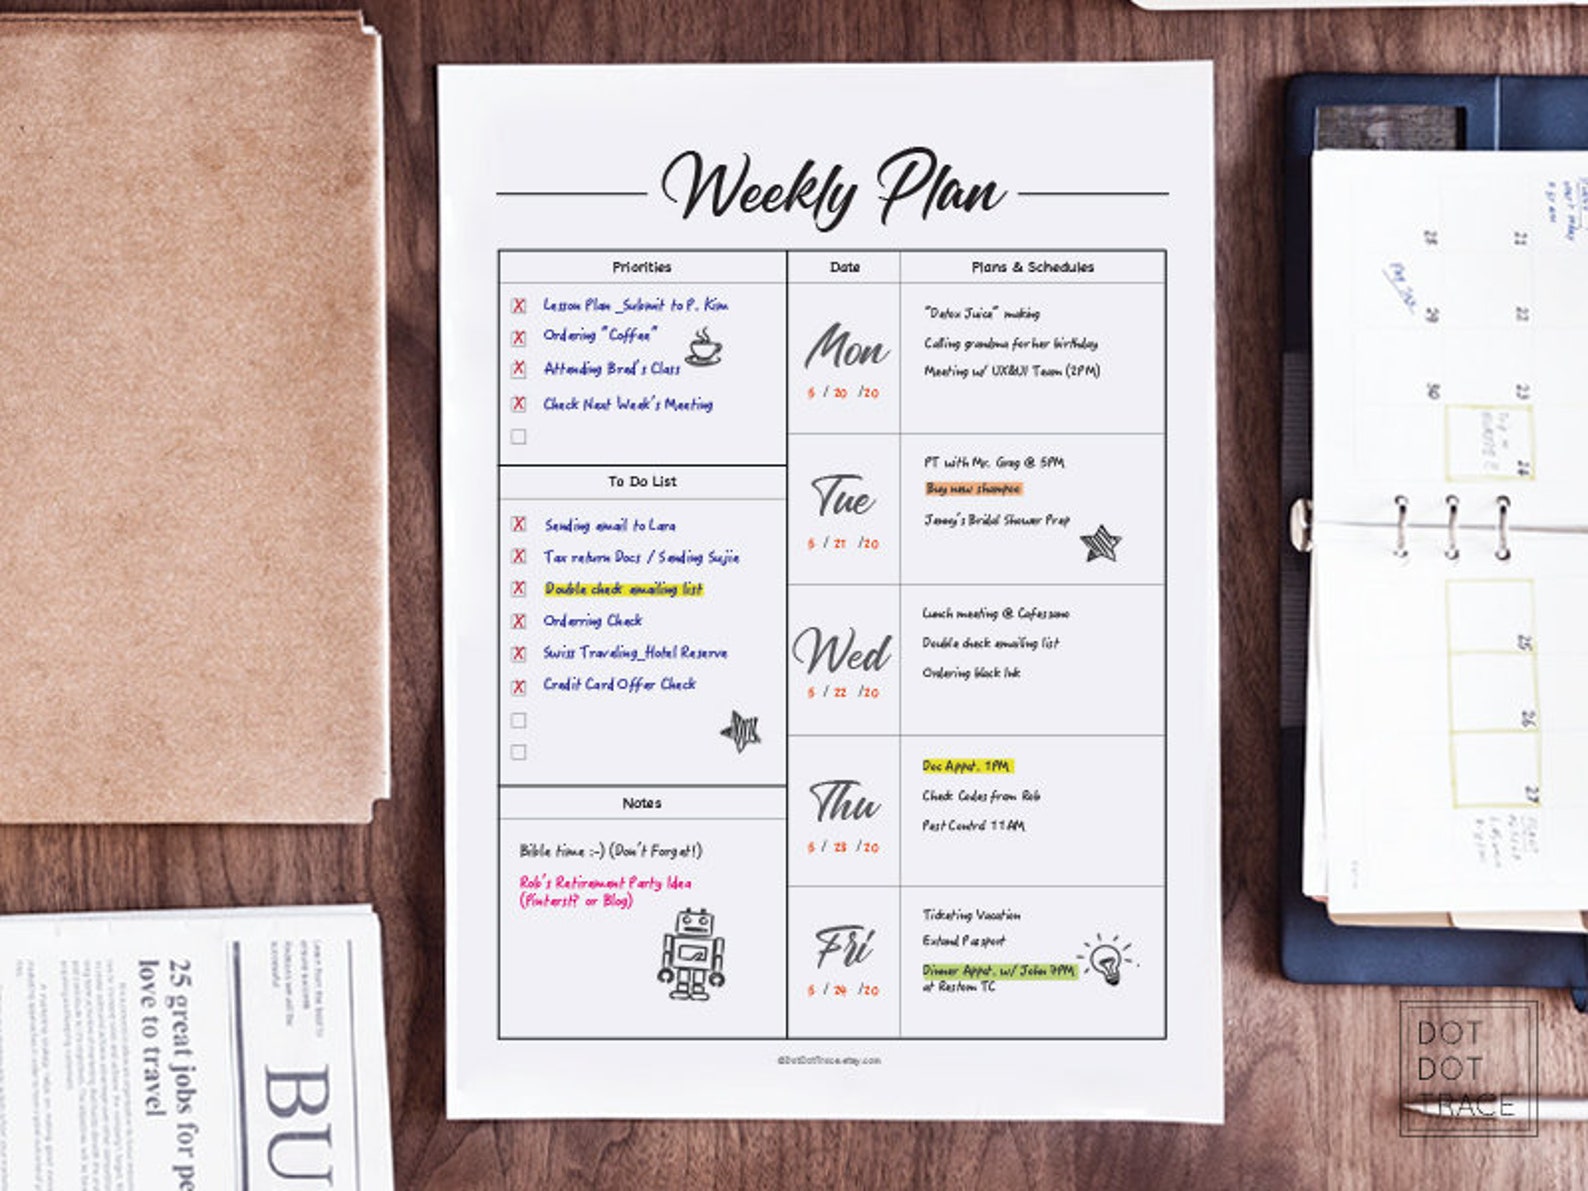 Weekly Plan
Priorities
X Lesson Plan _Submit to P. Kim
X Ordering "Coffee"
X Attending Brad's Class
X Check Next Week's Meeting
To Do List
X Sending email to Lara
X Tax return Docs / Sending Sujie
X Double check emailing list
X Ordering Check
X Swiss Traveling_Hotel Reserve
X Credit Card Offer Check
Notes
Bible time :-) (Don't Forget!)
Rob's Retirement Party Idea
(Pinterst? or Blog)
Date
Plans & Schedules
Mon
5 / 20 /20
"Detox Juice" making
Calling grandma for her birthday
Meeting w/ UX&UI Team (2PM)
Tue
5 / 21 /20
PT with Mr. Greg @ 5PM
Buy new shampoo
Jenny's Bridal Shower Prep
Wed
5 / 22 /20
Lunch meeting @ Cafessono
Double check emailing list
Ordering black Ink
Thu
5 / 23 /20
Doc Appt. 1PM
Check Codes from Rob
Pest Control 11AM
Fri
5 / 24 /20
Ticketing Vacation
Extend Passport
Dinner Appt. w/ John 7PM
at Restom TC
©DotDotTrace.etsy.com
25 great jobs for pe
love to travel
BU
28
21
29
22
30
23
24
25
26
27
DOT
DOT
TRACE